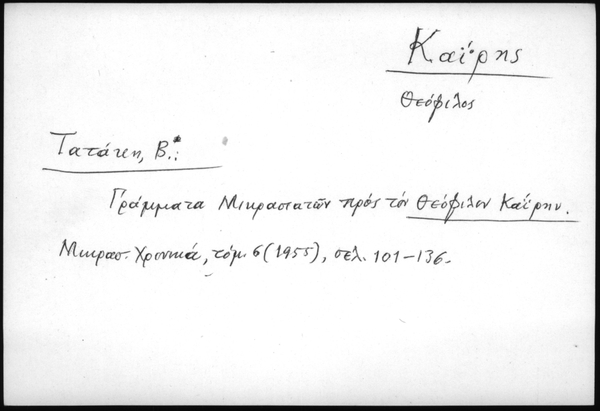 Καΐρης
Θεόφιλος
Τατάκη, Β.:
Γράμματα Μικρασιατῶν πρὸς τὸν Θεόφιλον Καΐρην.
Μικρασ. Χρονικά, τόμ. 6 (1955), σελ. 101-136.